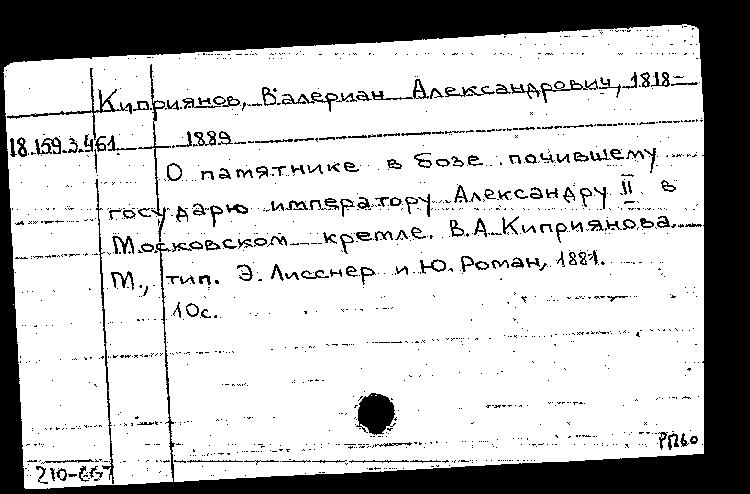 Киприянов, Валериан Александрович, 1818-
18.159.3.461 1889
О памятнике в бозе почившему
государю императору Александру II в
Московском кремле. В.А. Киприянова.
М., тип. Э. Лисснер и Ю. Роман, 1881.
10с.